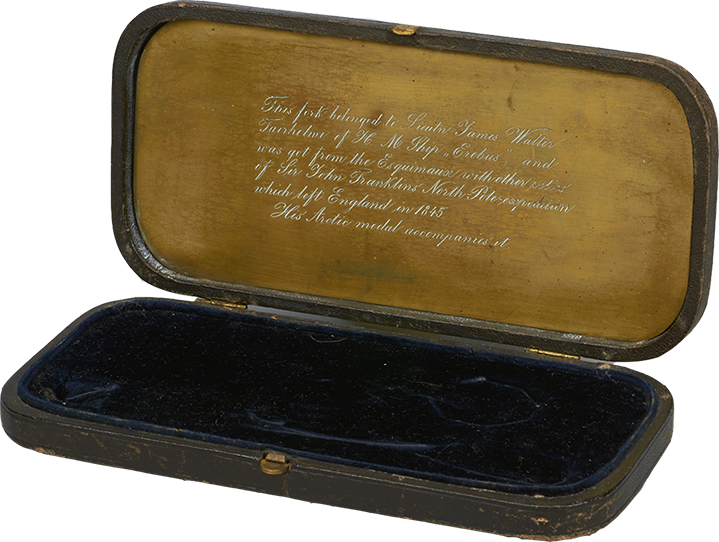 This fork belonged to Lieutn James Walter
Fairholme of H M Ship „Erebus„ and
was got from the Esquimaux with other relics
of Sir John Franklins North-Pole-expedition
which left England in 1845
His Arctic medal accompanies it